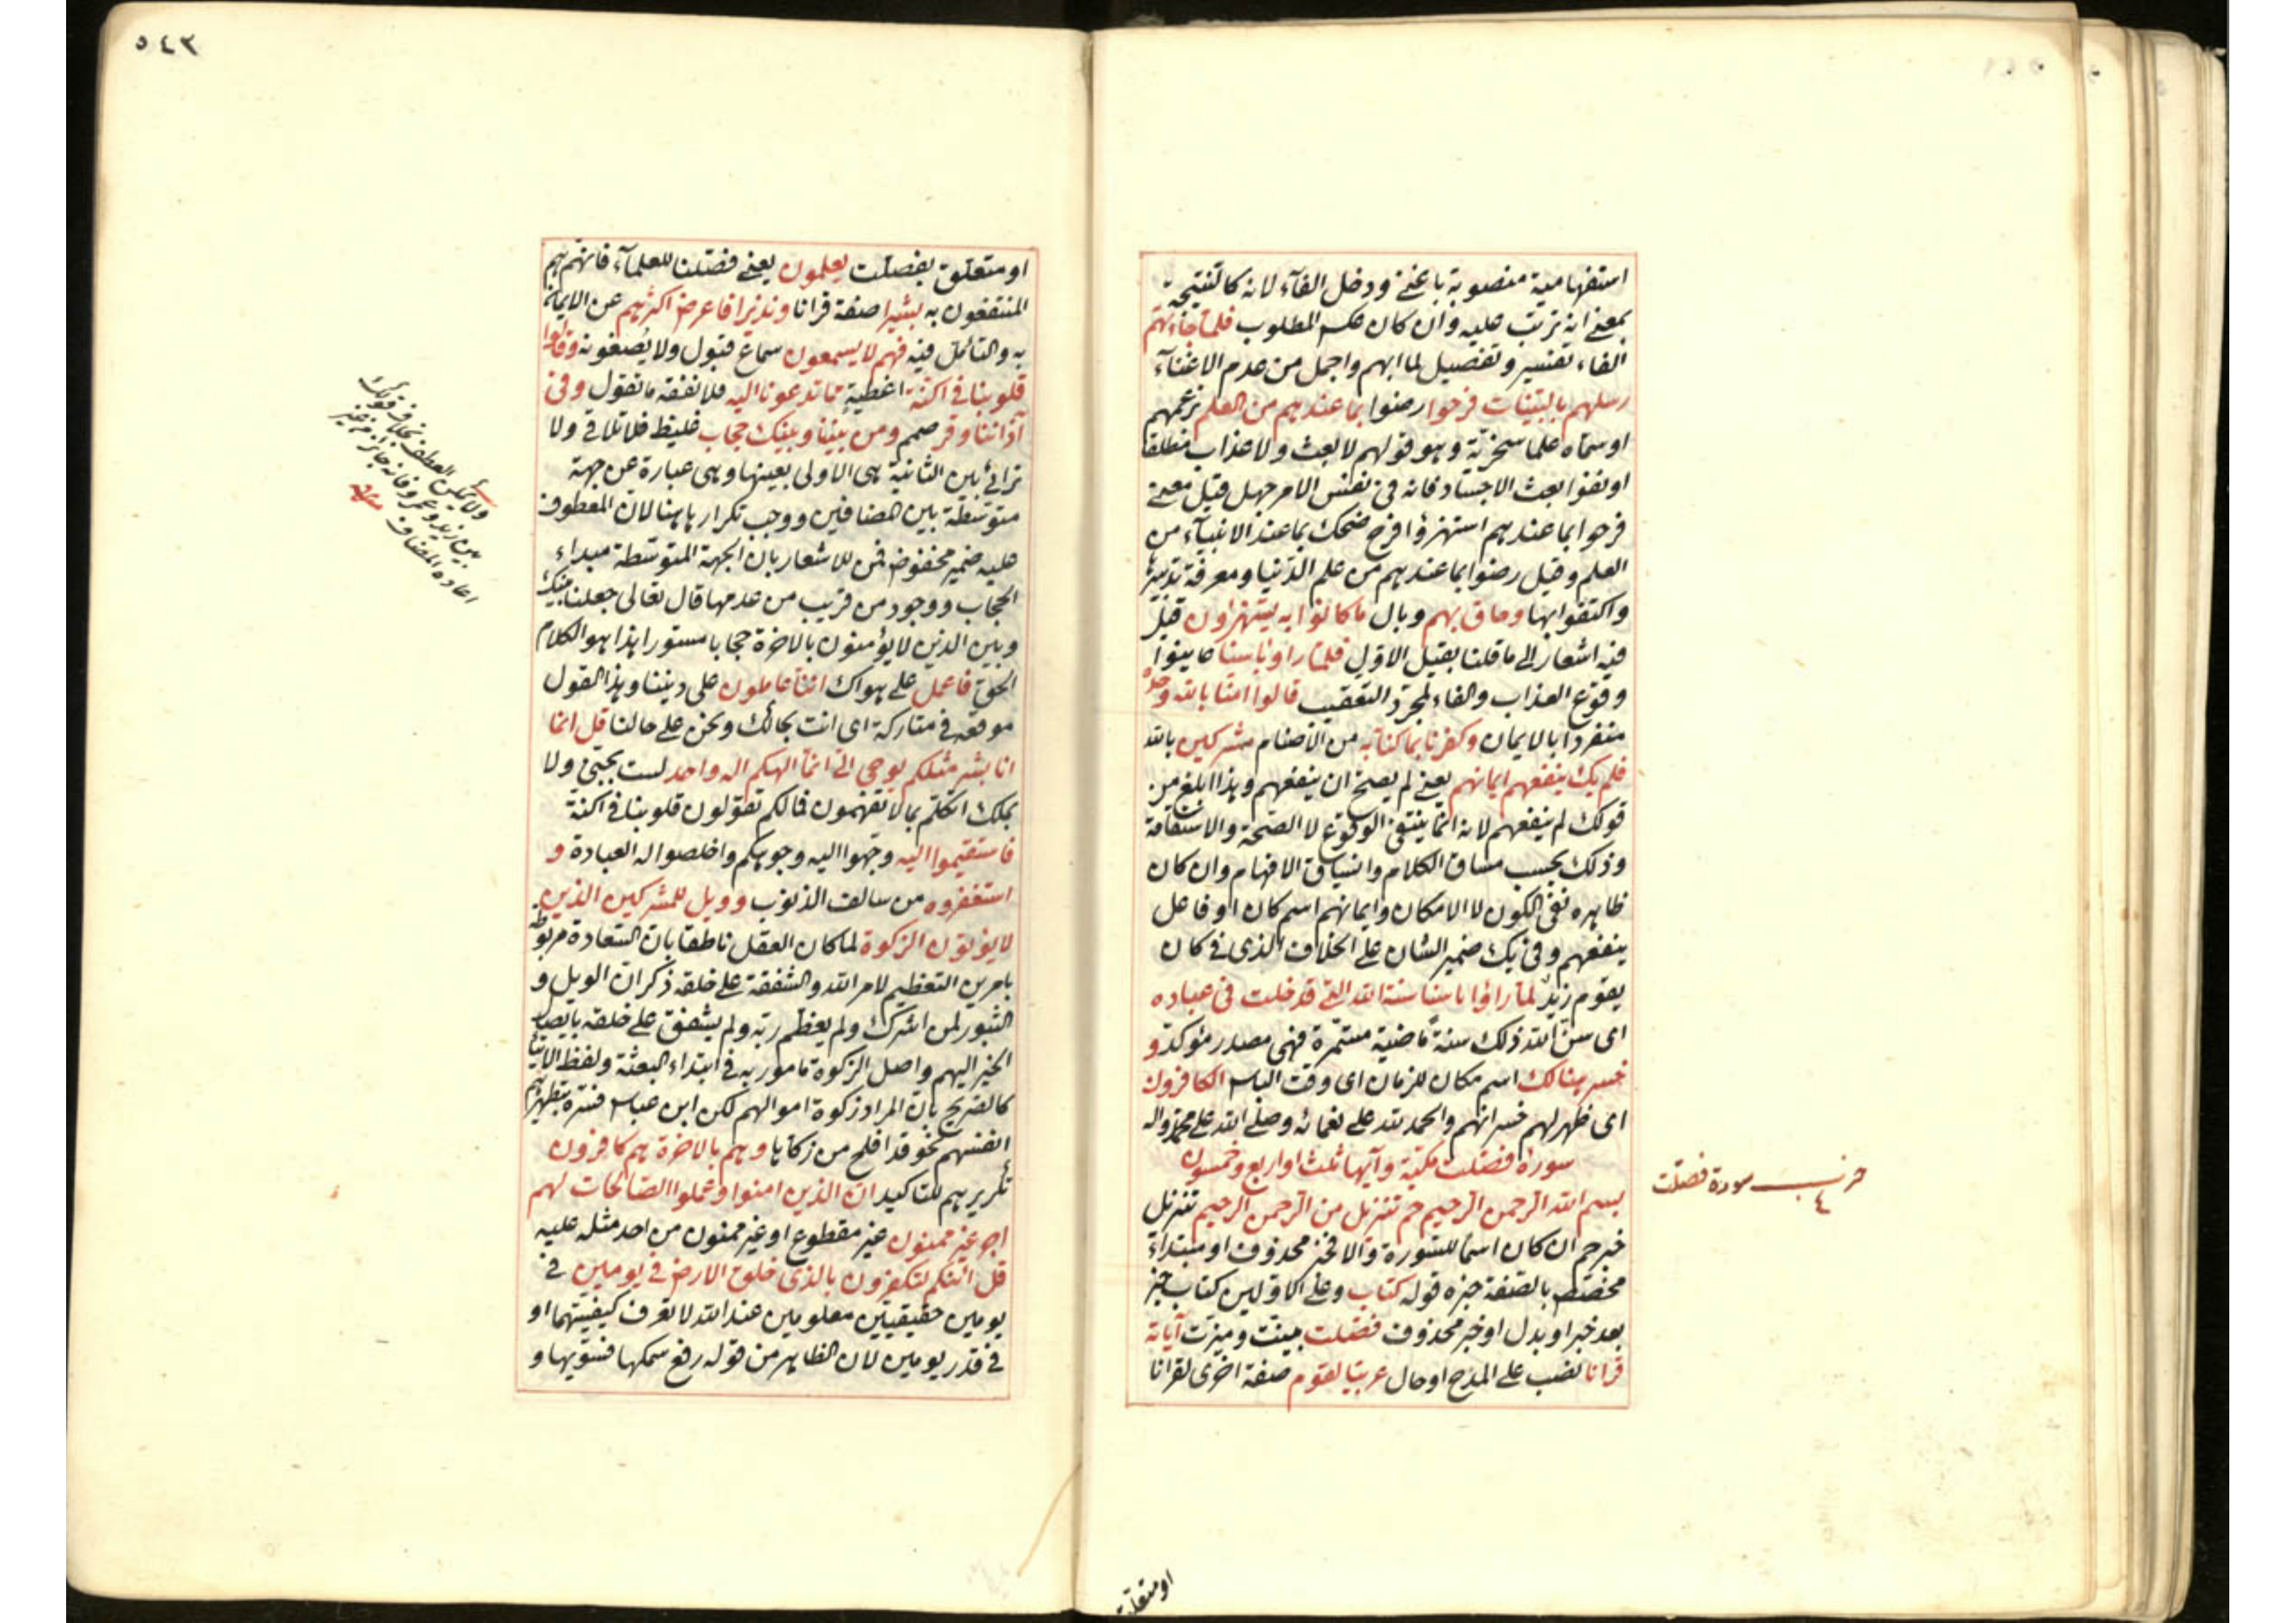 استفهامية منصوبة باغنى ودخل الفآء لانه كالنتيجة
بمعنى انه ترتب عليه وان كان عكس المطلوب فلما جاءتهم
الفاء تفسير وتفصيل لما ابهم واجمل من عدم الاغنآء
رسلهم بالبينات فرحوا رضوا بما عندهم من العلم بزعمهم
او سماه علما سخرية وهو قولهم لا بعث ولا عذاب مطلقا
او نفوا بعث الاجساد فانه فى نفس الامر جهل قيل معنى
فرحوا بما عندهم استهزؤا فرح ضحك بما عند الانبيآء من
العلم وقيل رضوا بما عندهم من علم الدنيا ومعرفة تدبيرها
واكتفوا بها وحاق بهم وبال ما كانوا به يستهزؤن قيل
فيه اشعار الى ما قلنا بقيل الاول فلما راوا باسنا عاينوا
وقوع العذاب والفاء لمجرد التعقيب قالوا امنا بالله وحده
منفردا بالايمان وكفرنا بما كنا به من الاصنام مشركين بالله
فلم يك ينفعهم ايمانهم يعنى لم يصح ان ينفعهم وهذا ابلغ من
قولك لم ينفعهم لانه انما ينتفى الوقوع لا الصحة والاستقامة
وذلك بحسب مساق الكلام وانسياق الافهام وان كان
ظاهره نفى الكون لا الامكان وايمانهم اسم كان او فاعل
ينفعهم وفى يك ضمير الشان على الخلاف الذى فى كان
يقوم زيد لما راوا باسنا سنة الله التى قد خلت فى عباده
اى سن الله ذلك سنة ماضية مستمرة فهى مصدر مؤكد و
خسر هنالك اسم مكان للزمان اى وقت الباس الكافرون
اى ظهر لهم خسرانهم والحمد لله على نعمائه وصلى الله على محمد واله
سورة فصلت مكية وآيها ثلث او اربع وخمسون
بسم الله الرحمن الرحيم حم تنزيل من الرحمن الرحيم تنزيل
خبر حم ان كان اسما للسورة والا فخبر محذوف او مبتداء
مخصص بالصفة خبره قوله كتاب وعلى الاولين كتاب خبر
بعد خبر او بدل او خبر محذوف فصلت بينت وميزت آياته
قرانا نصب على المدح او حال عربيا لقوم صفة اخرى لقرانا
سورة فصلت
٤
او متعلق
٥٤٣
او متعلق بفصلت يعلمون يعنى فصلنا للعلمآء فانهم هم
المنتفعون به بشيرا صفة قرانا ونذيرا فاعرض اكثرهم عن الايمان
به والتامل فيه فهم لا يسمعون سماع قبول ولا يصغونه وقالوا
قلوبنا فى اكنة اغطية مما تدعونا اليه فلا نفقه ما تقول وفى
آذاننا وقر صمم ومن بيننا وبينك حجاب غليظ فلا تلاقى ولا
ترائى بين الثانية هى الاولى بعينها وهى عبارة عن جهة
متوسطة بين المضافين ووجب تكرارها هنا لان المعطوف
عليه ضمير مخفوض فمن للاشعار بان الجهة المتوسطة مبداء
الحجاب ووجود من قريب من عدمها قال تعالى جعلنا بينك
وبين الذين لا يؤمنون بالاخرة حجابا مستورا هذا هو الكلام
الحق فاعمل على هواك اننا عاملون على ديننا وهذا القول
موقعه فى متاركة اى انت بحالك ونحن على حالنا قل انما
انا بشر مثلكم يوحى الى انما الهكم اله واحد لست بجنى ولا
بملك اتكلم بما لا تفهمون فما لكم تقولون قلوبنا فى اكنة
فاستقيموا اليه وجهوا اليه وجوهكم واخلصوا له العبادة و
استغفروه من سالف الذنوب وويل للمشركين الذين
لا يؤتون الزكوة لما كان العقل ناطقا بان السعادة مربوطة
بامرين التعظيم لامر الله والشفقة على خلقه ذكر ان الويل و
الثبور لمن اشرك ولم يعظم ربه ولم يشفق على خلقه بايصال
الخير اليهم واصل الزكوة مامور به فى ابتداء البعثة ولفظ الايتاء
كالصريح بان المراد زكوة اموالهم لكن ابن عباس فسره بتطهيرهم
انفسهم نحو قد افلح من زكاها وهم بالاخرة هم كافرون
تكرير هم للتاكيد ان الذين امنوا وعملوا الصالحات لهم
اجر غير ممنون غير مقطوع او غير ممنون من احد مثله عليه
قل ائنكم لتكفرون بالذى خلق الارض فى يومين فى
يومين حقيقيين معلومين عند الله لا تعرف كيفيتهما او
فى قدر يومين لان الظاهر من قوله رفع سمكها فسويها و
ولا يمكن العطف بخلاف قولك
بين زيد وعمرو فانه جائز من غير
اعادة المضاف منه